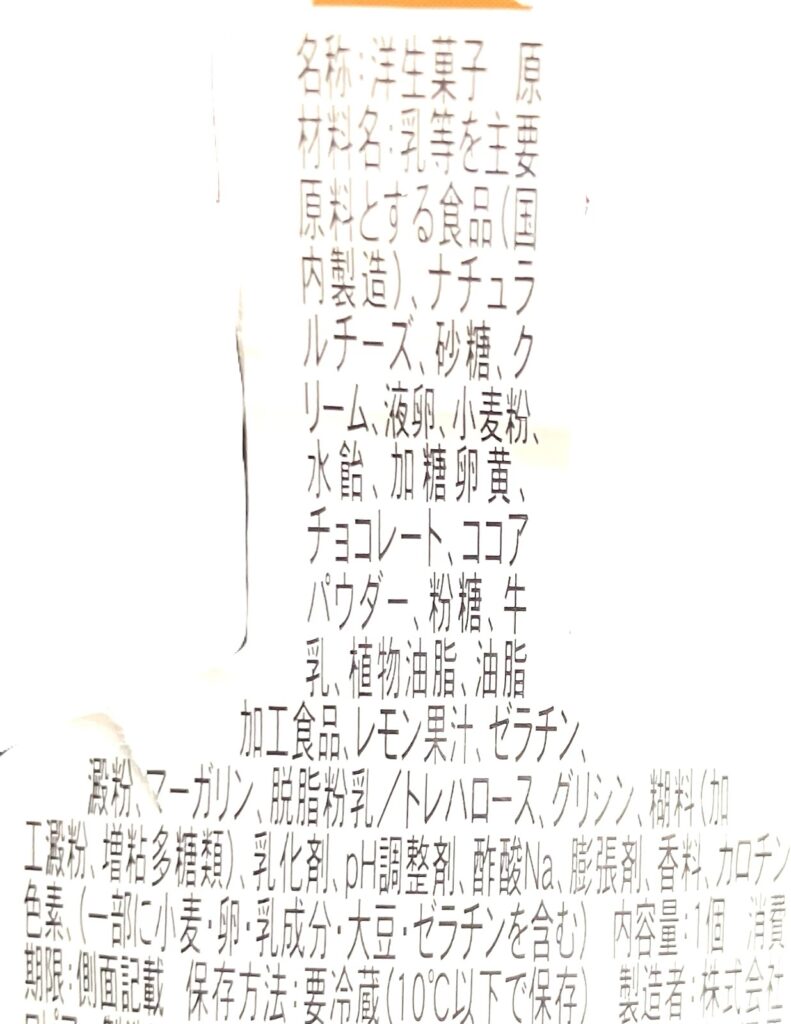 名称:洋生菓子　原
材料名:乳等を主要
原料とする食品(国
内製造)、ナチュラ
ルチーズ、砂糖、ク
リーム、液卵、小麦粉、
水飴、加糖卵黄、
チョコレート、ココア
パウダー、粉糖、牛
乳、植物油脂、油脂
加工食品、レモン果汁、ゼラチン、
澱粉、マーガリン、脱脂粉乳／トレハロース、グリシン、糊料(加
工澱粉、増粘多糖類)、乳化剤、pH調整剤、酢酸Na、膨張剤、香料、カロチン
色素、(一部に小麦・卵・乳成分・大豆・ゼラチンを含む)　内容量:1個　消費
期限:側面記載　保存方法:要冷蔵(10℃以下で保存)　製造者:株式会社